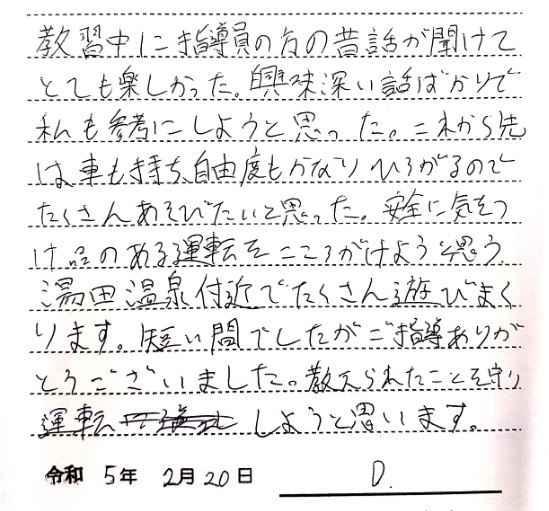 教習中に指導員の方の昔話が聞けて
とても楽しかった。興味深い話ばかりで
私も参考にしようと思った。これから先
は車も持ち、自由度もかなりひろがるので
たくさんあそびたいと思った。安全に気をつ
け品のある運転をこころがけようと思う
湯田温泉付近でたくさん遊びまく
ります。短い間でしたがご指導ありが
とうございました。教えられたことを守り
運転しようと思います。
令和 5年 2月 20日 D.